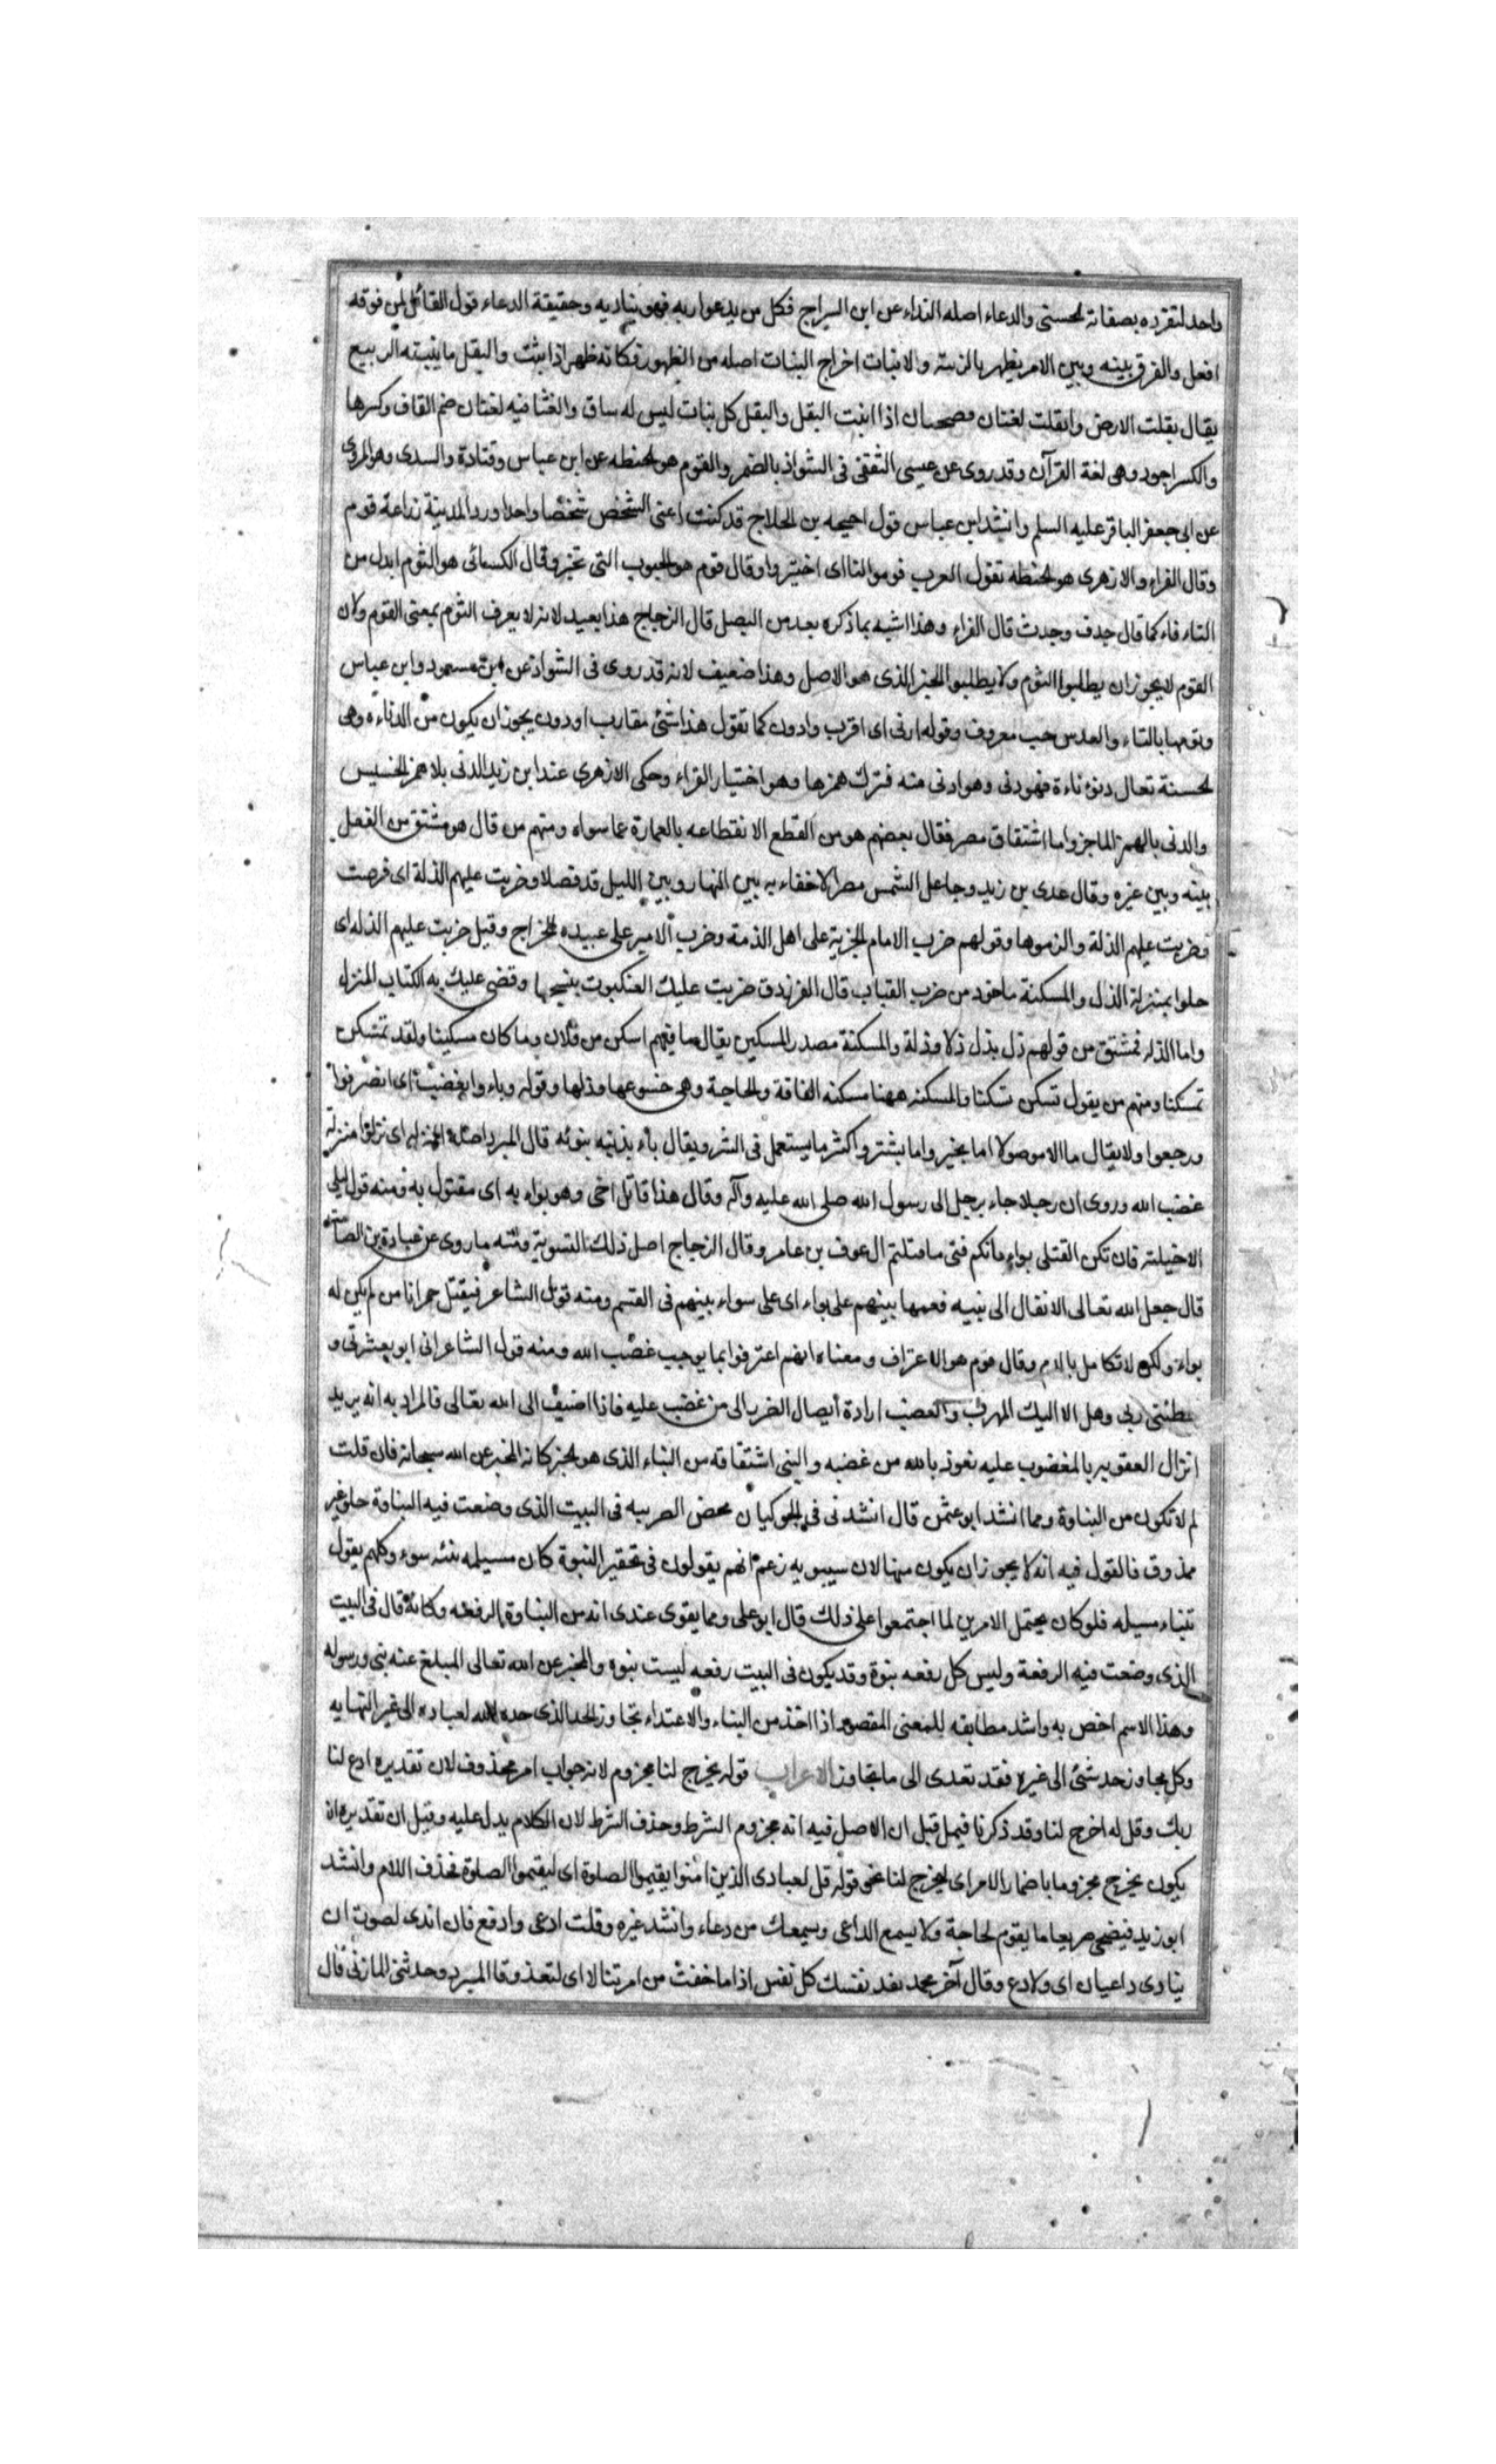 واحد لتفرده بصفاته الحسنى والدعاء اصله النداء عن ابن السراج فكل من يدعوا ربه فهو يناديه وحقيقة الدعاء قول القائل لمن فوقه
افعل والفرق بينه وبين الامر يظهر بالرتبة والانبات اخراج النبات اصله من الظهور فكانه ظهر اذا نبت والبقل ما ينبته الربيع
يقال بقلت الارض وابقلت لغتان فصيحتان اذا انبت البقل والبقل كل نبات ليس له ساق والقثا فيه لغتان ضم القاف وكسرها
والكسر اجود وهى لغة القرآن وقد روى عن عيسى الثقفى فى الشواذ بالضم والفوم هو الحنطه عن ابن عباس وقتادة والسدى وهو المروى
عن ابى جعفر الباقر عليه السلم وانشد ابن عباس قول احيحه بن الحلاج قد كنت اعنى الشخص شخصا واحدا ورد المدينة زراعة فوم
وقال الفراء والازهرى هو الحنطه تقول العرب فوموا لنا اى اختبزوا وقال قوم هو الحبوب التى تخبز وقال الكسائى هو الثوم ابدل من
الثاء فاء كما قال جدف وجدث قال الفراء وهذا اشبه بما ذكره بعد من البصل قال الزجاج هذا بعيد لانه لا يعرف الثوم بمعنى الفوم ولان
القوم لا يجوز ان يطلبوا الثوم ولا يطلبوا الخبز الذى هو الاصل وهذا ضعيف لانه قد روى فى الشواذ عن ابن مسعود وابن عباس
وثومها بالثاء والعدس حب معروف وقوله ادنى اى اقرب وادون كما تقول هذا شئ مقارب او دون يجوز ان يكون من الدناءه وهى
الخسة تقال دنؤ دناءة فهو دنى وهو ادنى منه فترك همزها وهو اختيار الفراء وحكى الازهرى عند ابن زيد الدنى بلا همز الخسيس
والدنى بالهمز الماجن واما اشتقاق مصر فقال بعضهم هو من القطع الانقطاعه بالعمارة عما سواه ومنهم من قال هو مشتق من الفصل
بينه وبين غيره وقال عدى بن زيد وجاعل الشمس مصرا لا خفاء به بين النهار وبين الليل قد فصلا وضربت عليهم الذلة اى فرضت
وضربت عليهم الذلة والزموها وقولهم ضرب الامام الجزية على اهل الذمة وضرب الامير على عبيده الخراج وقيل ضربت عليهم الذله اى
حلوا بمنزلة الذل والمسكنة ماخوذ من ضرب القباب قال الفرزدق ضربت عليك العنكبوت بنسيجها وقضى عليك به الكتاب المنزل
واما الذله فمشتق من قولهم ذل يذل ذلا وذلة والمسكنة مصدر المسكين يقال ما فيهم اسكن من فلان وما كان مسكينا ولقد تمسكن
تمسكنا ومنهم من يقول تسكن تسكنا والمسكنه ههنا مسكنه الفاقة والحاجة وهى خشوعها وذلها وقوله وباءوا بغضب اى انصرفوا
ورجعوا ولا يقال باء الا موصولا اما بخير واما بشر واكثر ما يستعمل فى الشر ويقال باء بذنبه يبوئه قال المبرد اصله المنزله اى نزلوا منزلة
غضب الله وروى ان رجلا جاء برجل الى رسول الله صلى الله عليه وآله وقال هذا قاتل اخى وهو بواء به اى مقتول به ومنه قول ليلى
الاخيلية فان تكن القتلى بواء فانكم فتى ما قتلتم ال عوف بن عامر وقال الزجاج اصل ذلك التسوية ومنه ما روى عن عبادة بن الصامت
قال جعل الله تعالى الانفال الى نبيه فقسمها بينهم على بواء اى على سواء بينهم فى القسم ومنه قول الشاعر فيقتل جبرا بامرء لم يكن له
بواء ولكن لا تكامل بالدم وقال قوم هو الاعتراف ومعناه انهم اعترفوا بما يوجب غضب الله ومنه قول الشاعر انى ابوء بعثرتى و
خطئتى ربى وهل الا اليك المهرب والغضب ارادة أيصال الضرر الى من غضب عليه فاذا اضيف الى الله تعالى فالمراد به انه يريد
انزال العقوبه بالمغضوب عليه نعوذ بالله من غضبه والنبى اشتقاقه من النباء الذى هو الخبز كانه المخبر عن الله سبحانه فان قلت
لم لا تكون من النباوة ومما انشد ابو عثمن قال انشدنى محض الضريبه فى البيت الذى وضعت فيه النباوة حلو غير
ممذوق فالقول فيه انه لا يجوز ان يكون منها لان سيبويه زعم انهم يقولون فى تحقير النبوة كان مسيلمه نبئه سوء وكلهم يقول
تنباء مسيلمه فلو كان يحتمل الامرين لما اجتمعوا على ذلك قال ابو على ومما يقوى عندى انه من النباوة الرفعه وكانه قال فى البيت
الذى وضعت فيه الرفعة وليس كل رفعه نبوة وقد يكون فى البيت رفعه ليست نبوه والمخبر عن الله تعالى المبلغ عنه نبى ورسوله
وهذا الاسم اخص به واشد مطابقه للمعنى المقصود اذا اخذ من النباء والاعتداء تجاوز الحد الذى حده الله لعباده الى غير النهايه
وكل مجاوز حد شئ الى غيره فقد تعدى الى ما تجاوز الاعراب قوله يخرج لنا مجزوم لانه جواب امر محذوف لان تقديره ادع لنا
ربك وقل له اخرج لنا وقد ذكرنا فيما قبل ان الاصل فيه انه مجزوم الشرط وحذف الشرط لان الكلام يدل عليه وقيل ان تقديره ان
يكون يخرج مجزوما باضمار الامر اى ليخرج لنا نحو قوله قل لعبادى الذين امنوا يقيموا الصلوة اى ليقيموا الصلوة فحذف اللام وانشد
ابو زيد فيضحى صريعا ما يقوم لحاجة ولا يسمع الداعى ويسمعك من دعاء وانشد غيره وقلت ادعى وادع فان اندى لصوت ان
ينادى داعيان اى ولادع وقال آخر محمد تفد نفسك كل نفس اذا ما خفت من امر تبالا اى لتفد وقال المبرد وحدثنى المازنى قال